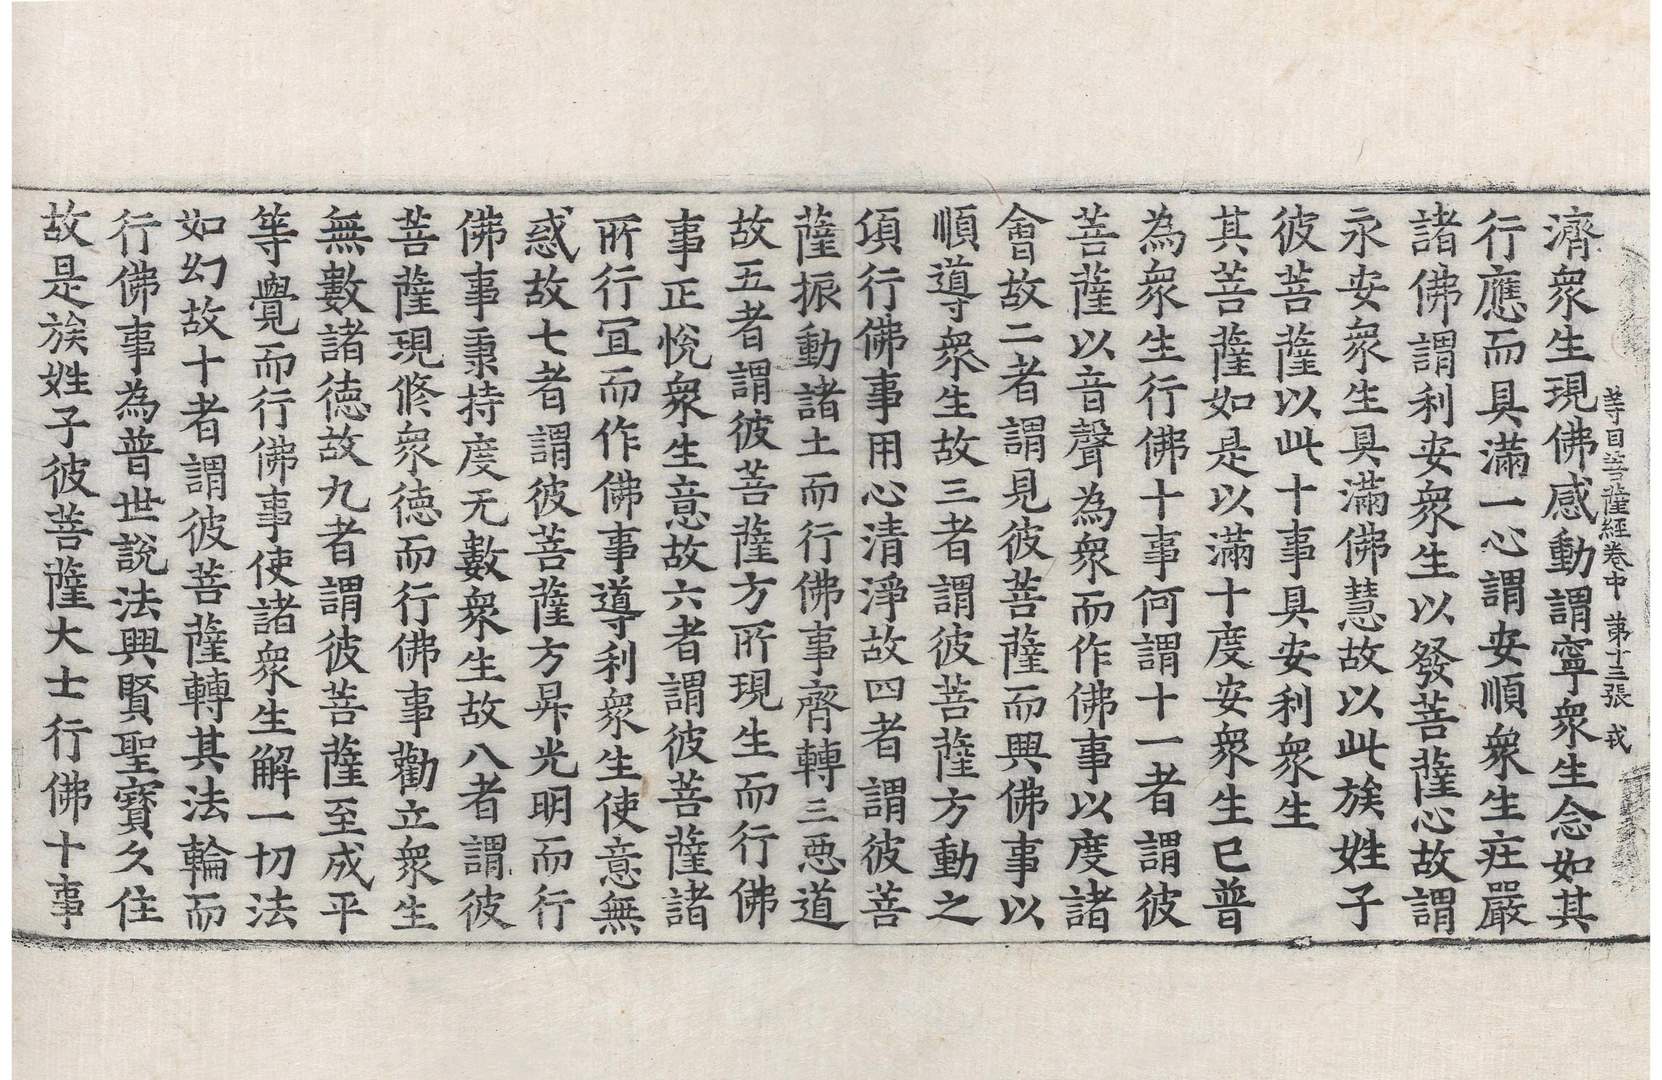 等目菩薩經卷中 第十三張 戎
濟衆生現佛感動謂寧衆生念如其
行應而具滿一心謂安順衆生莊嚴
諸佛謂利安衆生以發菩薩心故謂
永安衆生具滿佛慧故以此族姓子
彼菩薩以此十事具安利衆生
其菩薩如是以滿十度安衆生已普
為衆生行佛十事何謂十一者謂彼
菩薩以音聲為衆而作佛事以度諸
會故二者謂見彼菩薩而興佛事以
順導衆生故三者謂彼菩薩方動之
湏行佛事用心清淨故四者謂彼菩
薩振動諸土而行佛事齊轉三惡道
故五者謂彼菩薩方所現生而行佛
事正悅衆生意故六者謂彼菩薩諸
所行冝而作佛事導利衆生使意無
惑故七者謂彼菩薩方昇光明而行
佛事秉持度无數衆生故八者謂彼
菩薩現修衆德而行佛事勸立衆生
無數諸德故九者謂彼菩薩至成平
等覺而行佛事使諸衆生解一切法
如幻故十者謂彼菩薩轉其法輪而
行佛事為普世說法興賢聖寶久住
故是族姓子彼菩薩大士行佛十事